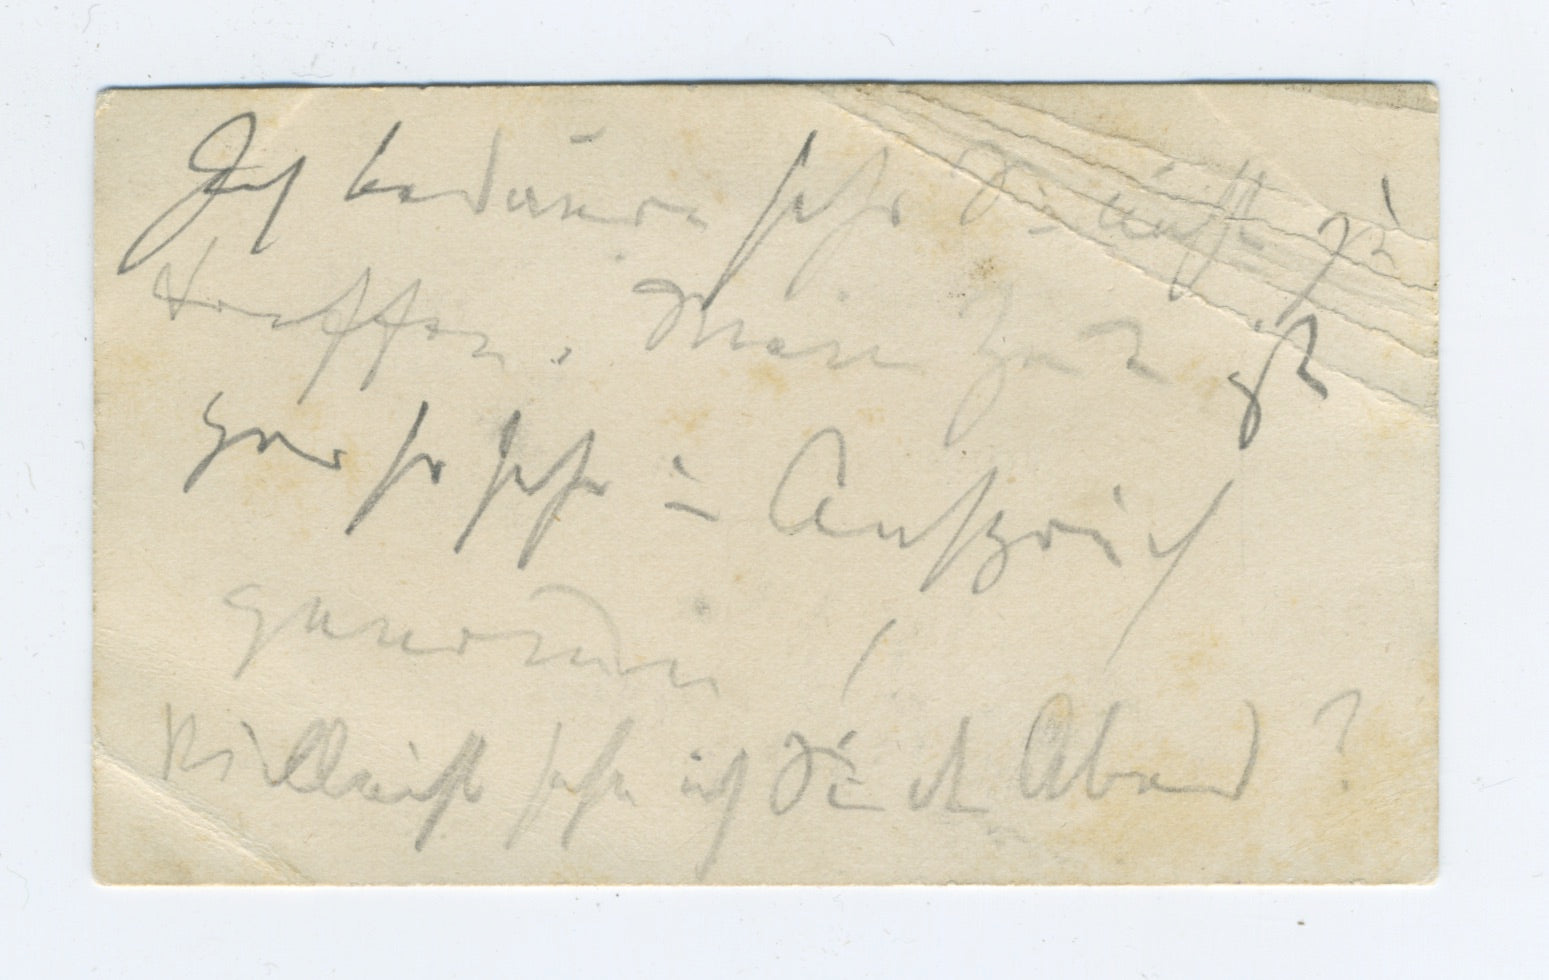 Ich bedaure sehr Sie nicht zu
treffen. Meine Zeit ist
gar so sehr in Anspruch
genommen!
Vielleicht sehe ich Sie Abend?